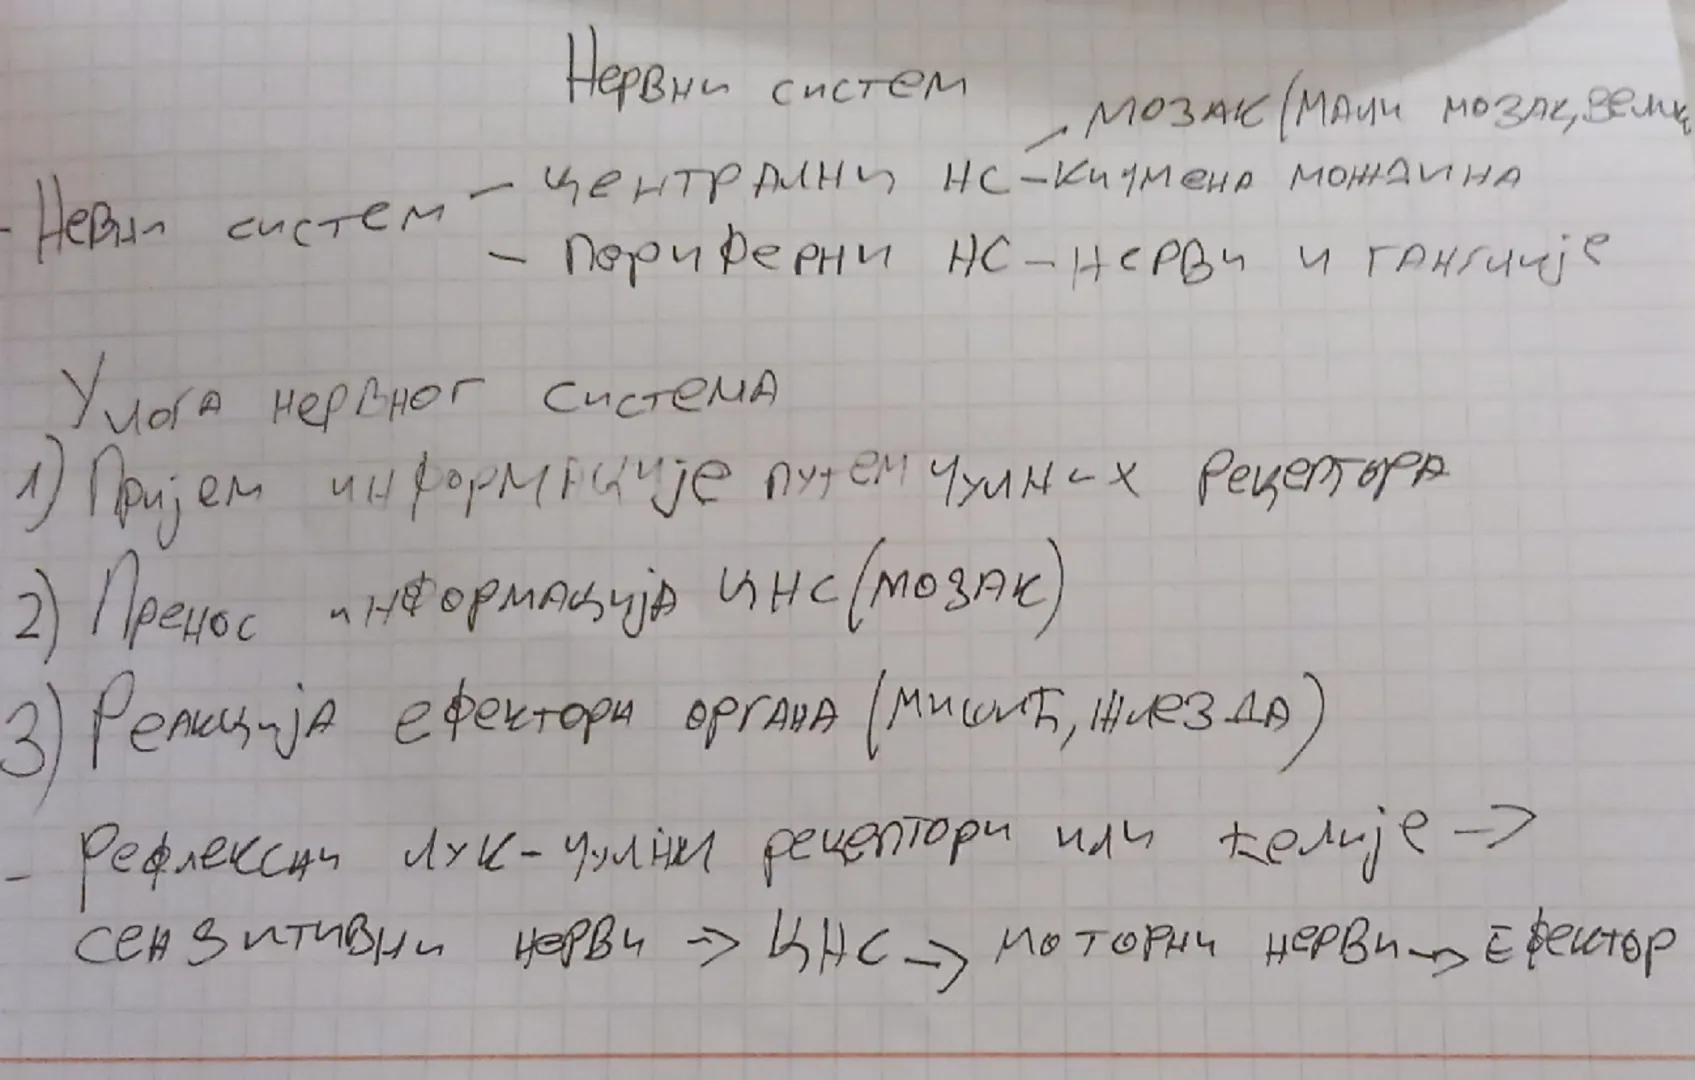 Нервни систем
мозак (мали мозак, велик
- Невни систем - централни НС - кичмена мождина
- Периферни НС - нерви и ганглије
Улога нервног система
1) Пријем информације путем чулних рецептора
2) Пренос информација ЦНС (мозак)
3) Реакција ефектори органа (мишић, жлезда)
- Рефлексни лук - чулни рецептори или ћелије ->
сензитивни нерви -> ЦНС -> моторни нерви -> Ефектор